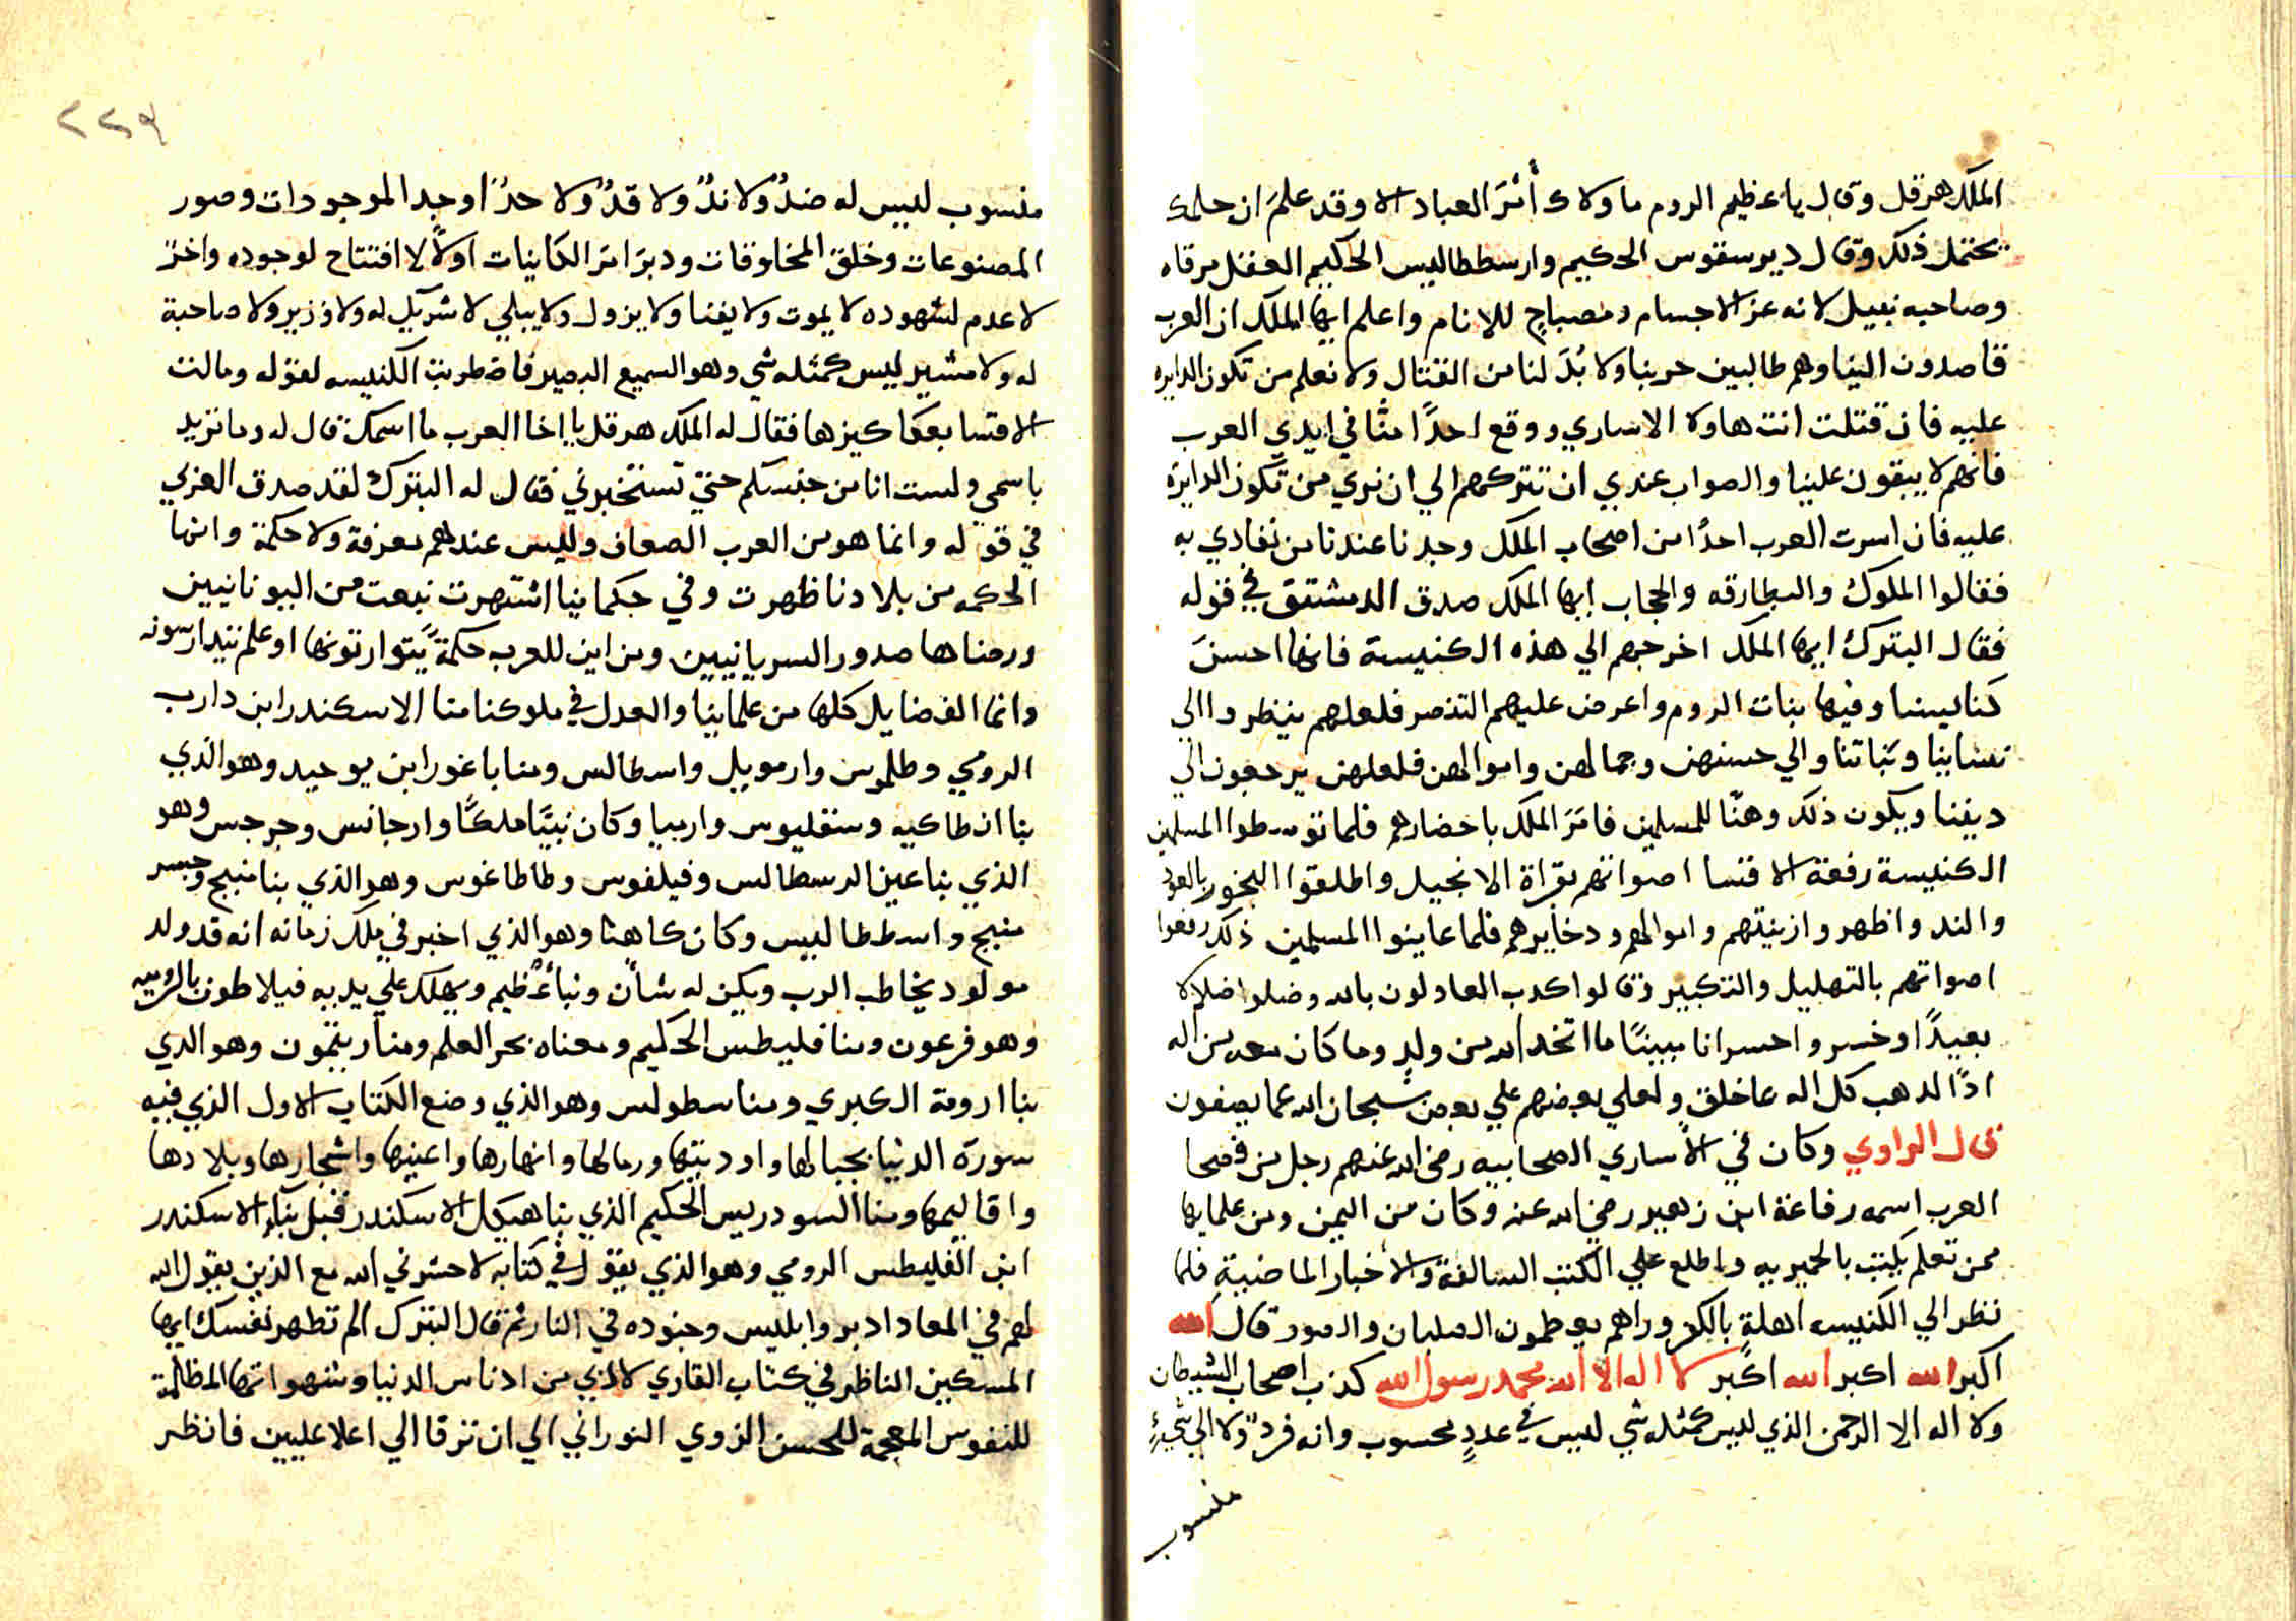 الملك هرقل وقال يا عظيم الروم ما ولاك أمْرَ العباد الا وقد علمَ ان حلمك
يحتمل ذلك وقال ديرسقوس الحكيم وارسططاليس الحكيم العقل مرقاه
وصاحبه نبيل لانه عز الاجسام ومصباح للانام واعلم ايها الملك ان العرب
قاصدون الينا وهم طالبين حربنا ولا بُدَّ لنا من القتال ولا نعلم من تكون الدايره
عليه فان قتلت انت هاولا الاساري ووقع احدًا منّا في ايدي العرب
فانهم لا يبقون علينا والصواب عندي ان تتركهم الي ان نري من تكون الدايرة
عليه فان اسرت العرب احدًا من اصحاب الملك وجدنا عندنا من نفادي به
فقالوا الملوك والبطارقه والحجاب ايها الملك صدق الدمشتق في قوله
فقال البترك ايها الملك اخرجهم الي هذه الكنيسة فانها احسن
كنايسنا وفيها بنات الروم واعرض عليهم التنصر فلعلهم ينظروا الي
نساينا وبناتنا والي حسنهن وجمالهن واموالهن فلعلهن يرجعون الي
ديننا ويكون ذلك وهنًا للمسلمين فامَرَ الملك باحضارهم فلما توسطوا المسلمين
الكنيسة رفعة الاقسا اصواتهم بقراة الانجيل واطلقوا البخور بالعود
والند واظهروا زينتهم واموالهم ودخايرهم فلما عاينوا المسلمين ذلك رفعوا
اصواتهم بالتهليل والتكبير وقالوا كدب العادلون بالله وضلوا ضلالا
بعيدًا وخسروا خسرانا مبينًا ما اتخد الله من ولدٍ وما كان معه من اله
ادًا لدهب كل اله بما خلق ولعلي بعضهم علي بعض سبحان الله عما يصفون
قال الراوي وكان في الاساري الصحابيه رضي الله عنهم رجل من فصحا
العرب اسمه رفاعة ابن زهير رضي الله عنه وكان من اليمن ومن علمايها
ممن تعلم يكتب بالحميريه واطلع علي الكتب السالفة والاخبار الماضية فلما
نظر الي الكنيسه اهلةٍ بالكفر وراهم يعظمون الصلبان والصور قال الله
اكبر الله اكبر الله اكبر لا اله الا الله محمد رسول الله كذب اصحاب الشيطان
ولا اله الا الرحمن الذي ليس كمثله شي ليس في عددٍ محسوب وانه فردٌ ولا الي شيءٍ
منسوب
٢٢٩
منسوب ليس له ضدٌ ولا ندٌ ولا قدٌ ولا حدٌ اوجد الموجودات وصور
المصنوعات وخلق المخلوقات ودبرَ امر الكاينات اولًا لا افتتاح لوجوده واخرٌ
لا عدم لشهوده لا يموت ولا يفنا ولا يزول ولا يبلي لا شريك له ولا وزير ولا صاحبة
له ولا مشير ليس كمثله شي وهو السميع البصير فاضطربت الكنيسه لقوله ومالت
الاقسا بعكاكيزها فقال له الملك هرقل يا اخا العرب ما اسمك قال له وما تريد
باسمي ولست انا من جنسكم حتي تستخبرني فقال له البترك لقد صدق العربي
في قوله وانما هو من العرب الضعاف وليس عندهم معرفة ولا حكمة وانما
الحكمه من بلادنا ظهرت وفي حكماينا اشتهرت نبعت من اليونانيين
ورضناها صدور السريانيين ومن اين للعرب حكمةً يتوارثونها او علم يتدارسونه
وانما الفضايل كلها من علماينا والعدل في ملوكنا منا الاسكندر ابن دارب
الرومي وطلموس وارمويل واسطالس ومنا باغور ابن يوحيد وهو الذي
بنا انطاكيه وسنقليوس واربيا وكان نبيًا ملكًا وارجانس وجرجس وهو
الذي بنا عين الرسطالس وفيلفوس وطاطاغوس وهو الذي بنا منبج وجسر
منبج واسططاليس وكان كاهنًا وهو الذي اخبر في ملك زمانه انه قد ولد
مولود يخاطب الرب ويكن له شأن ونبأ عظيم ويهلك علي يديه فيلاطون بالروميه
وهو فرعون ومنا فليطس الحكيم ومعناه بحر العلم ومنا ريتمون وهو الدي
بنا ارومة الكبري ومنا سطولس وهو الذي وضع الكتاب الاول الذي فيه
سورة الدنيا بجبالها واوديتها ورمالها وانهارها واعينها واشجارها وبلادها
واقاليمها ومنا السودريس الحكيم الذي بنا هيكل الاسكندر قبل بناء الاسكندر
ابن الفليطس الرومي وهو الذي يقول في كتابه لا حشرني الله مع الذين يقول الله
لهم في المعاد ادبروا ابليس وجنوده في النار ثم قال البترك الم تطهر نفسك ايها
المسكين الناظر في كتاب القاري لاذي من ادناس الدنيا وشهواتها المظالمة
للنفوس المعجمة للحسن الزوي النوراني الي ان ترقا الي اعلا عليين فانظر